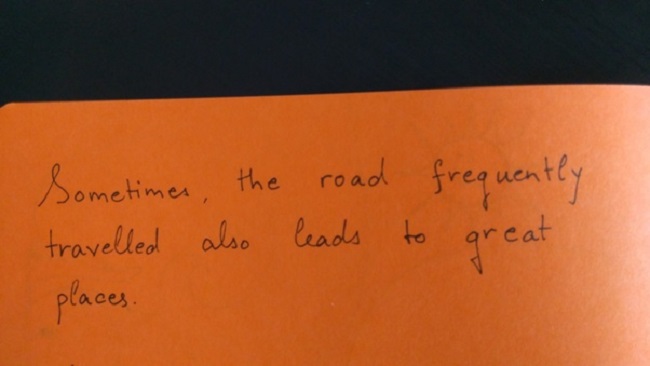 Sometimes, the road frequently
travelled also leads to great
places.